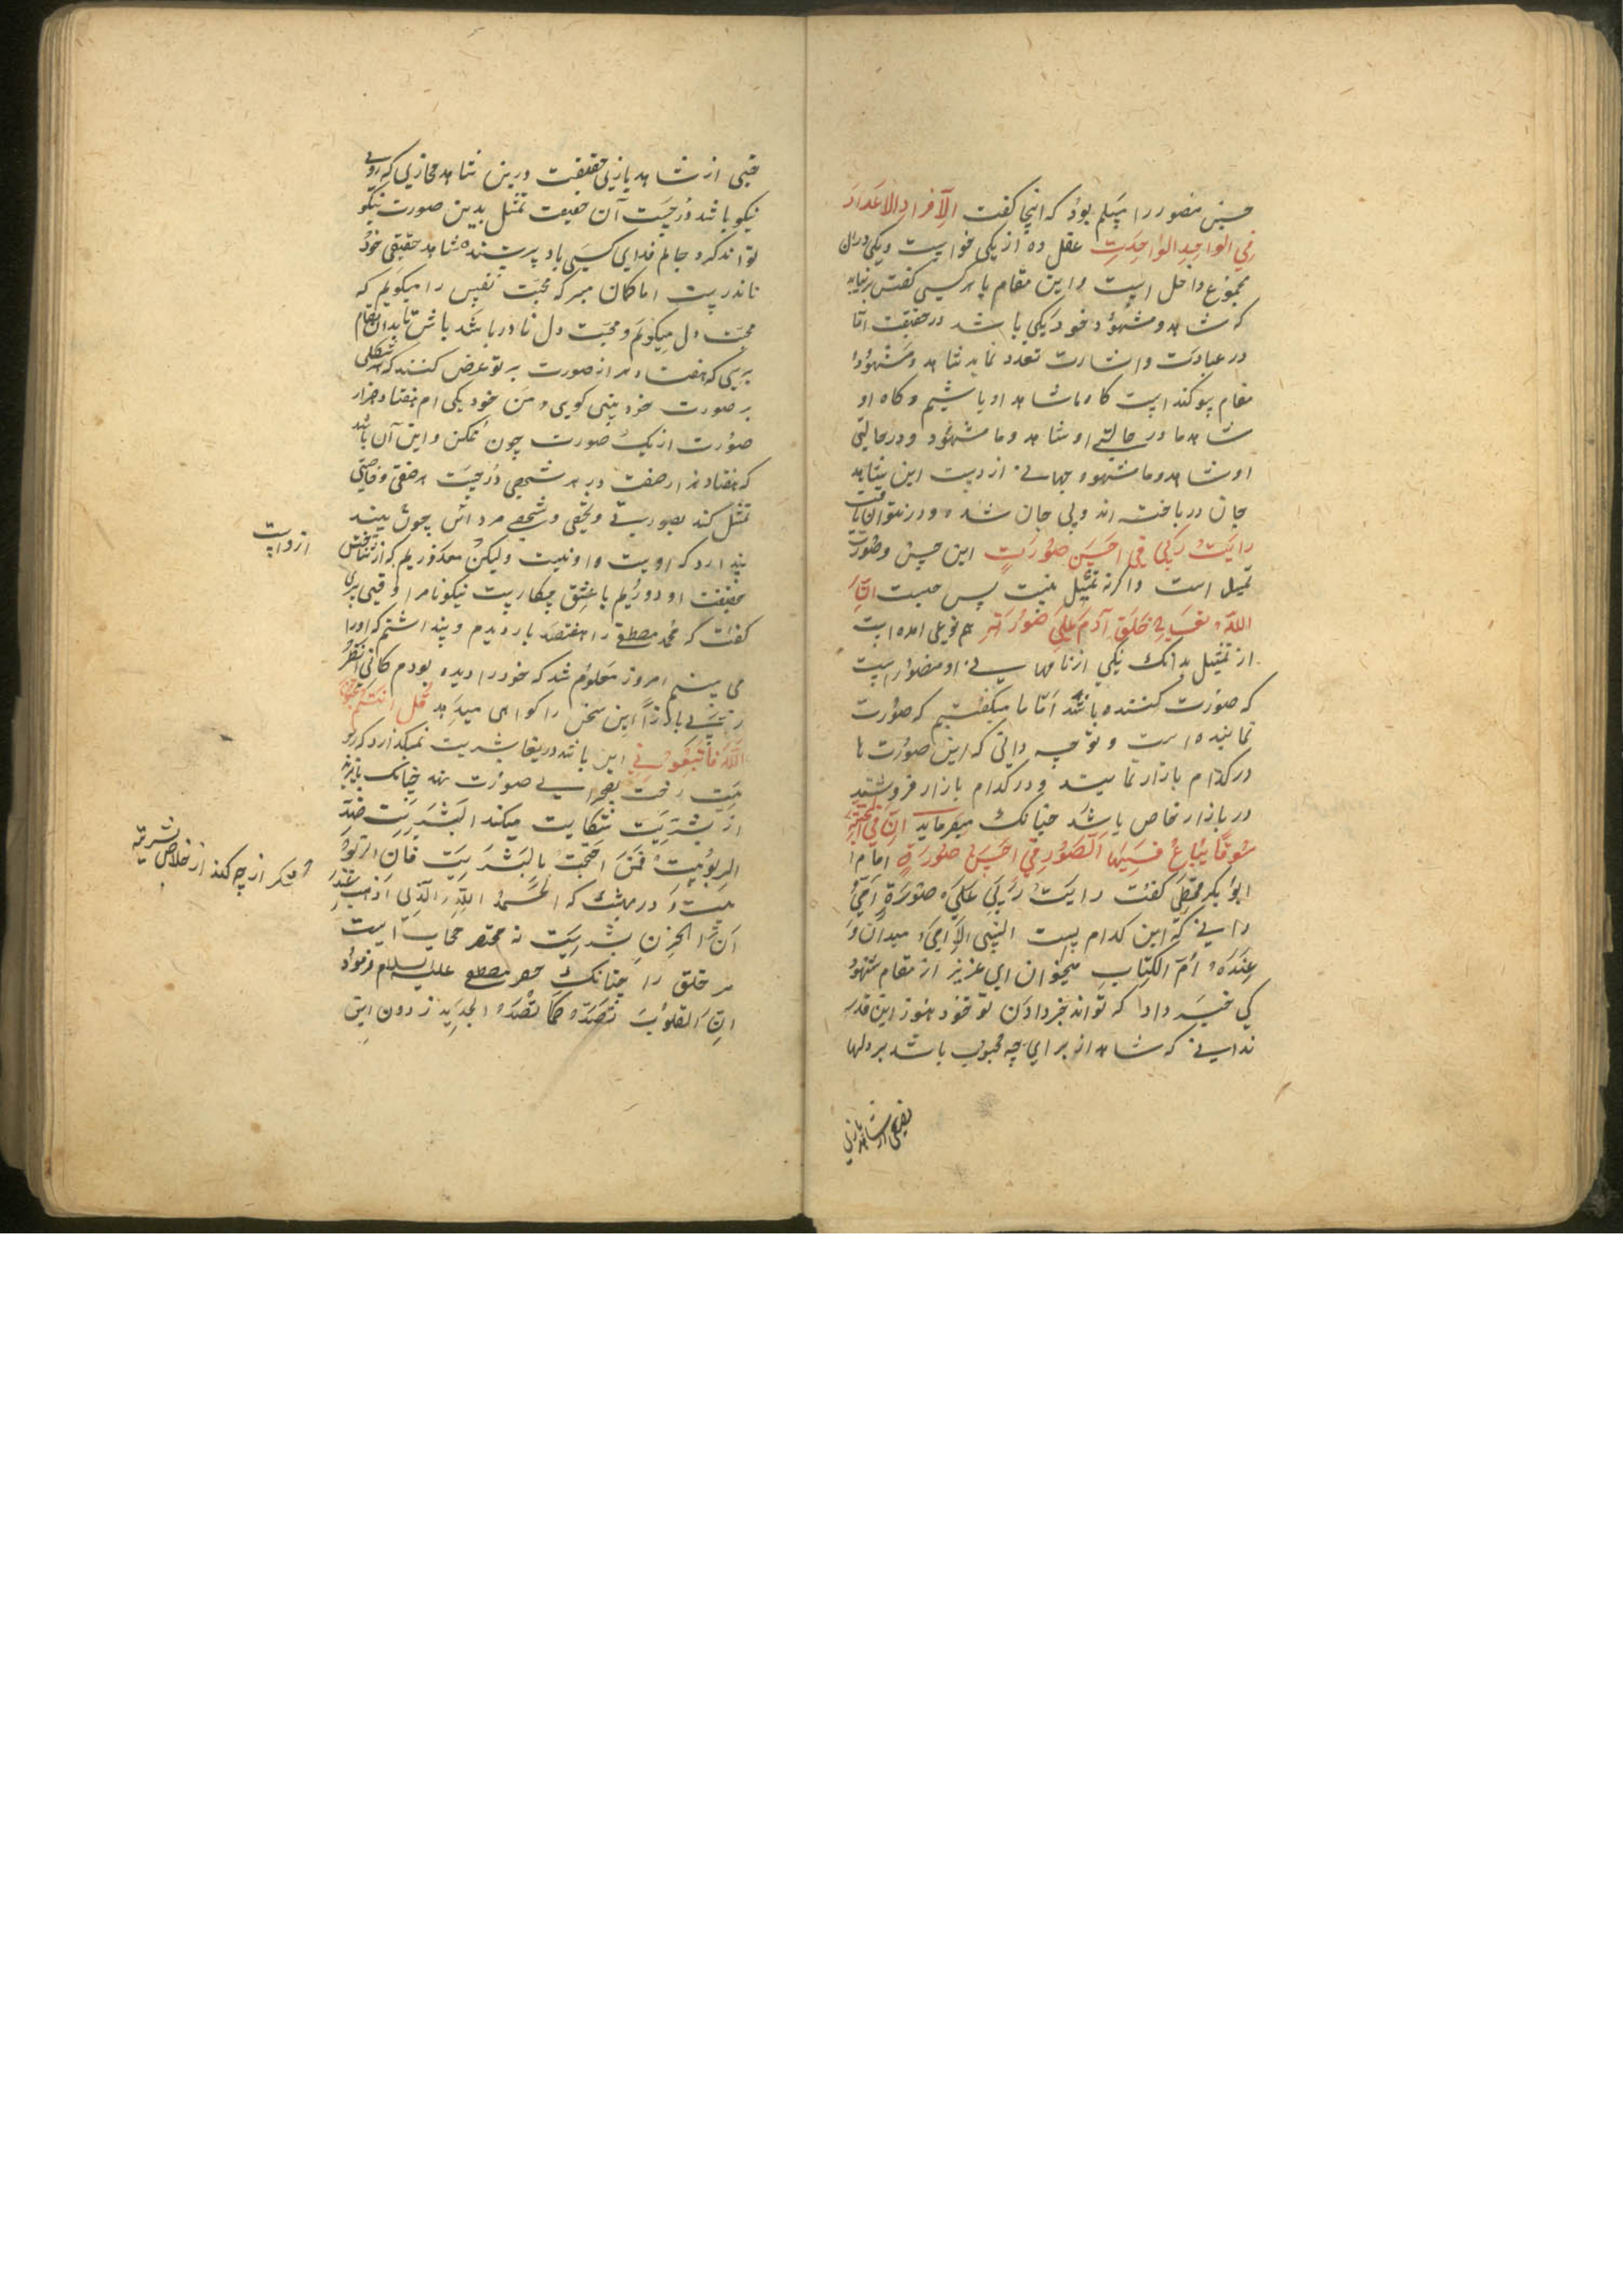 حسین منصور را مسلم بود که اینجا گفت الافراد الاعداد
في الواحد الواحدت عقل ده از یکی خواست و یکی در ان
مجموع داخل است و این مقام با هر کسی گفتن بر نیاید
که شاهد و مشهود خود یکی باشد در حقیقت اما
در عبارت و اشارت تعدد نماید شاهد و مشهود
مقام سوکند است کاه ما شاهد او باشیم و کاه او
شاهد ما در حالتی او شاهد و ما مشهود و در حالتی
او شاهد و ما مشهود جهانی از دست این شاهد
جان درباخته اند و بی جان شده و درنتوان یافت
رایت ربی في احسن صورت این حسن و صورت
تمثیل است و اکر نه تمثیل نیست پس چیست ان
الله تعالی خلق آدم علی صورته هم نوعی امده است
از تمثیل بدانک یکی از نامهای او مصور است
که صورت کننده باشد اما ما میگفتیم که صورت
نماینده است و تو چه دانی که این صورت ها
در کدام بازار نمایند و در کدام بازار فروشند
در بازار خاص باشد چنانک میفرماید ان في الجنة
سوقا یباع فیها الصور في احسن صورة امام
ابو بکر قحطی گفت رایت ربی علی صورة امی
دانی که این کدام است النبی الامی میدان و
عنده ام الکتاب میخوان ای عزیز از مقام شهود
کی خبر داد که تواند خبر دادن تو خود هنوز این قدر
ندانی که شاهد از برای چه محبوب باشد بر دلها
نصیبی از شاهد بازی
حقیقت درین شاهد مجازی که روی
نیکو باشد درجست آن حقیقت تمثل بدین صورت نیکو
تواند کرد جانم فدای کسی باد پرستنده شاهد حقیقی خود
نادرست اما کمان مبر که محبت نفس را میگویم که
محبت دل میگویم و محبت دل نادر باشد باش تا بدان مقام
برسی که هفتاد هزار صورت بر تو عرض کنند که هر شکلی
بر صورت خود بینی کویی من خود یکی ام هفتاد هزار
صورت از یک صورت چون ممکن و این آن باشد
که هفتاد هزار صفت در هر شخصی درجست هر صفتی و خاصیتی
تمثل کند بصورتی و شخصی مرد آن چون بیند
پندارد که اوست و او نیست ولیکن معذوریم که از یافتن
حقیقت او دوریم با عشق چکارست نیکونام را وقتی پیری
گفت که محمد مصطفی را هفتصد بار دیدم و پنداشتم که او را
می بینم امروز معلوم شد که خود را دیده بودم کانی انظر
ربی بارزا این سخن را کواهی میدهد قل ان کنتم تحبون
الله فاتبعوني این باشد دریغا بشریت نمیگذارد که
رخت بصحرای صورت نهد چنانک بایزید
از بشریت شکایت میکند البشریت ضد
الربوبیت فمن احتجب بالبشریت فان الربو
بیت و در بهشت که الحمد لله الذی اذهب عنا
الحزن بشریت نه مختصر حجابیست
مر خلق را چنانک مصطفی علیه السلام فرمود
ان القلوب تصده کما تصده الحدید ز دون این
از واست
شکر از چه کند از خلاص بشریت